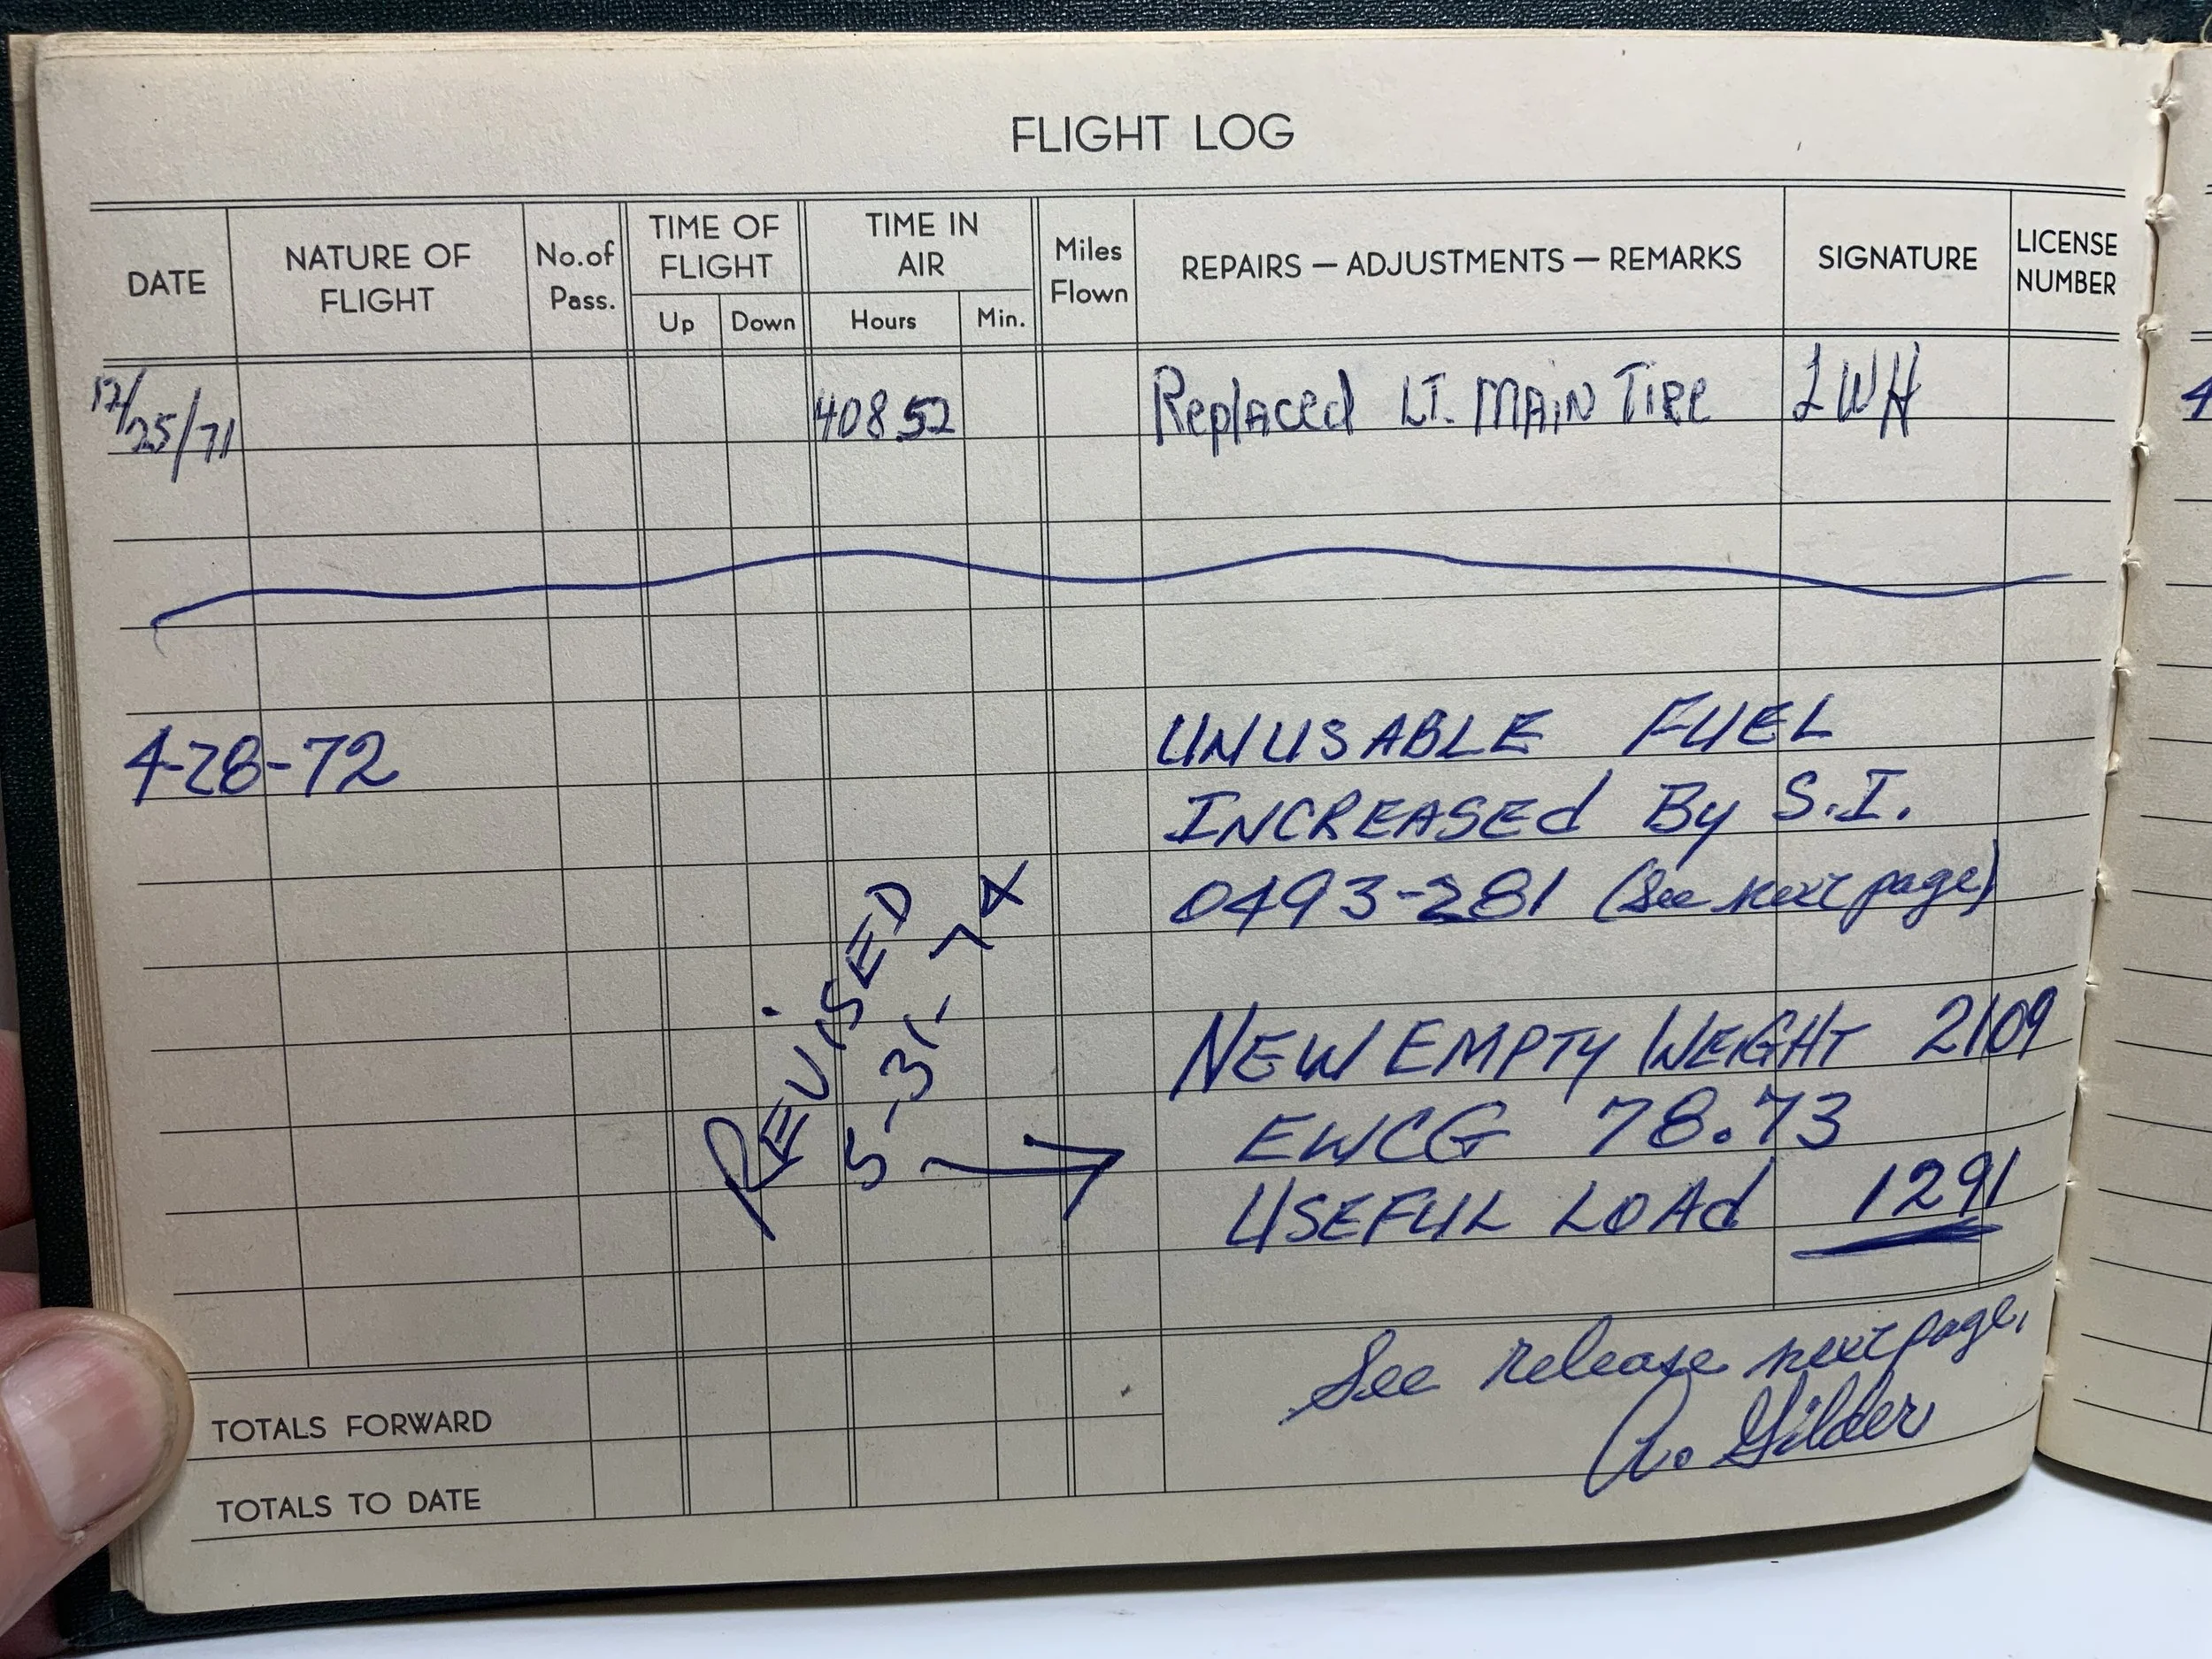 FLIGHT LOG
DATE NATURE OF FLIGHT No. of Pass. TIME OF FLIGHT Up Down TIME IN AIR Hours Min. Miles Flown REPAIRS — ADJUSTMENTS — REMARKS SIGNATURE LICENSE NUMBER
12/25/71 408.52 Replaced LT. MAIN TIRE LWH
4-28-72 UNUSABLE FUEL
INCREASEd By S.I.
0493-281 (See next page)
NEW EMPTY WEIGHT 2109
EWCG 78.73
USEFUL LOAd 1291
REVISED
5-31-74
See release next page.
A. Gilder
TOTALS FORWARD
TOTALS TO DATE
4